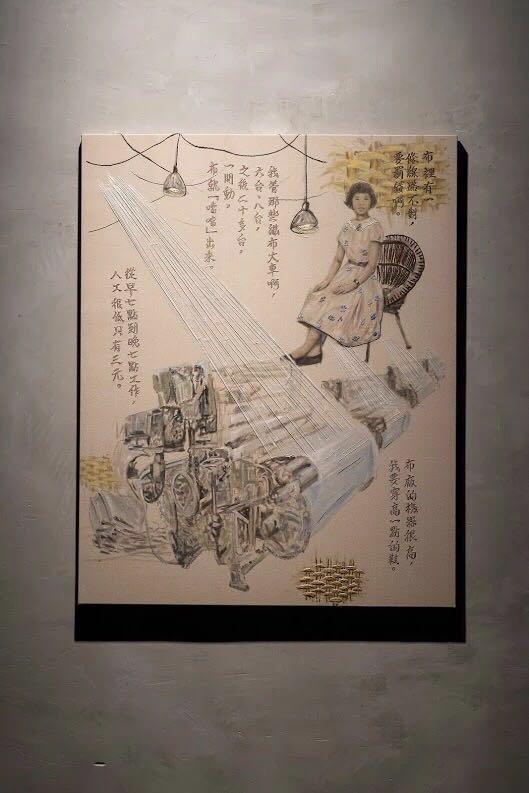 布裡有一
條線織不對，
要罰錢啊。
我管那些織布火車啊，
六台、八台，
之後二十多台。
一開動。
布就「嘈喧」出來。
從早七點到晚七點工作，
人工很低只有三元。
布廠的機器很高，
我要穿高一點的鞋。